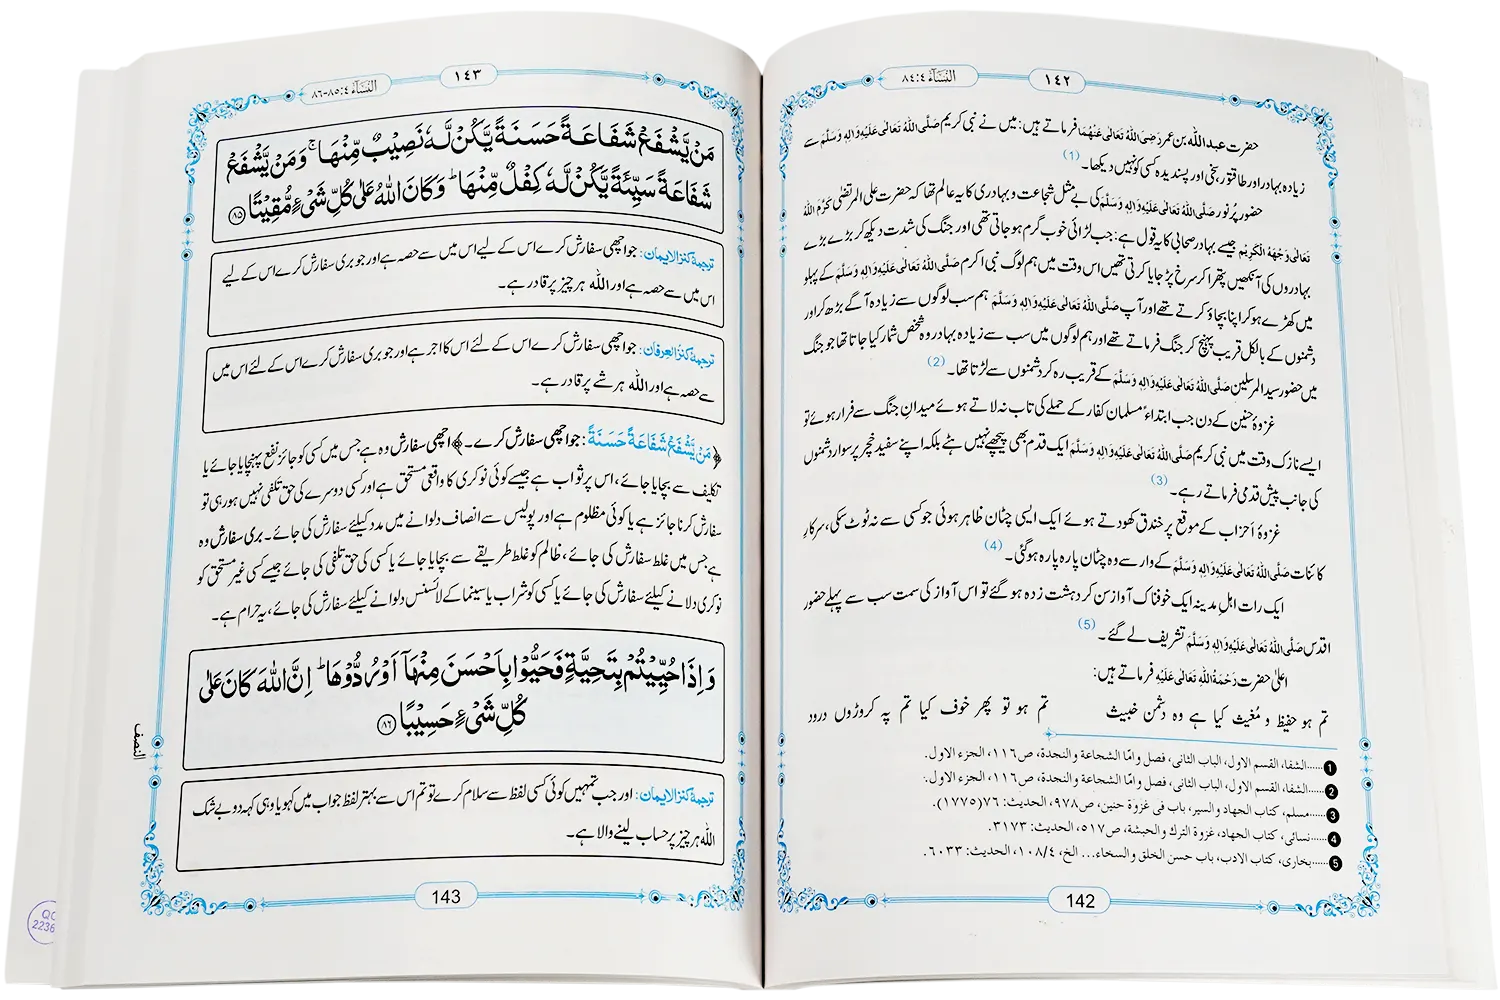 النساء ٤:٨٤
١٤٢
حضرت عبداللہ بن عمر رَضِیَ اللہُ تَعَالٰی عَنْہُمَا فرماتے ہیں: میں نے نبی کریم صَلَّی اللہُ تَعَالٰی عَلَیْہِ وَاٰلِہٖ وَسَلَّمَ سے
زیادہ بہادر اور طاقتور، سخی اور پسندیدہ کسی کو نہیں دیکھا۔ (1)
حضور پُر نور صَلَّی اللہُ تَعَالٰی عَلَیْہِ وَاٰلِہٖ وَسَلَّمَ کی بے مثل شجاعت و بہادری کا یہ عالم تھا کہ حضرت علی المرتضیٰ کَرَّمَ اللہُ
تَعَالٰی وَجْہَہُ الْکَرِیْم جیسے بہادر صحابی کا یہ قول ہے: جب لڑائی خوب گرم ہو جاتی تھی اور جنگ کی شدت دیکھ کر بڑے بڑے
بہادروں کی آنکھیں پتھرا کر سرخ پڑ جایا کرتی تھیں اس وقت میں ہم لوگ نبی اکرم صَلَّی اللہُ تَعَالٰی عَلَیْہِ وَاٰلِہٖ وَسَلَّمَ کے پہلو
میں کھڑے ہو کر اپنا بچاؤ کرتے تھے اور آپ صَلَّی اللہُ تَعَالٰی عَلَیْہِ وَاٰلِہٖ وَسَلَّمَ ہم سب لوگوں سے زیادہ آگے بڑھ کر اور
دشمنوں کے بالکل قریب پہنچ کر جنگ فرماتے تھے اور ہم لوگوں میں سب سے زیادہ بہادر وہ شخص شمار کیا جاتا تھا جو جنگ
میں حضور سید المرسلین صَلَّی اللہُ تَعَالٰی عَلَیْہِ وَاٰلِہٖ وَسَلَّمَ کے قریب رہ کر دشمنوں سے لڑتا تھا۔ (2)
غزوۂ حنین کے دن جب ابتداءً مسلمان کفار کے حملے کی تاب نہ لاتے ہوئے میدانِ جنگ سے فرار ہوئے تو
ایسے نازک وقت میں نبی کریم صَلَّی اللہُ تَعَالٰی عَلَیْہِ وَاٰلِہٖ وَسَلَّمَ ایک قدم بھی پیچھے نہیں ہٹے بلکہ اپنے سفید خچر پر سوار دشمنوں
کی جانب پیش قدمی فرماتے رہے۔ (3)
غزوۂ اَحزاب کے موقع پر خندق کھودتے ہوئے ایک ایسی چٹان ظاہر ہوئی جو کسی سے نہ ٹوٹ سکی، سرکارِ
کائنات صَلَّی اللہُ تَعَالٰی عَلَیْہِ وَاٰلِہٖ وَسَلَّمَ کے وار سے وہ چٹان پارہ پارہ ہوگئی۔ (4)
ایک رات اہلِ مدینہ ایک خوفناک آواز سن کر دہشت زدہ ہوگئے تو اس آواز کی سمت سب سے پہلے حضور
اقدس صَلَّی اللہُ تَعَالٰی عَلَیْہِ وَاٰلِہٖ وَسَلَّمَ تشریف لے گئے۔ (5)
اعلیٰ حضرت رَحْمَۃُ اللہِ تَعَالٰی عَلَیْہِ فرماتے ہیں:
تم ہو حفیظ و مُغیث کیا ہے وہ دشمن خبیث تم ہو تو پھر خوف کیا تم پہ کروڑوں درود
1......الشفا، القسم الاول، الباب الثانی، فصل وامّا الشجاعة والنجدة، ص١١٦، الجزء الاول.
2......الشفا، القسم الاول، الباب الثانی، فصل وامّا الشجاعة والنجدة، ص١١٦، الجزء الاول.
3......مسلم، کتاب الجهاد والسیر، باب فی غزوة حنین، ص٩٧٨، الحدیث: ٧٦(١٧٧٥).
4......نسائی، کتاب الجهاد، غزوة الترك والحبشة، ص٥١٧، الحدیث: ٣١٧٣.
5......بخاری، کتاب الادب، باب حسن الخلق والسخاء... الخ، ١٠٨/٤، الحدیث: ٦٠٣٣.
142
النساء ٤:٨٥-٨٦
١٤٣
مَنْ یَّشْفَعْ شَفَاعَةً حَسَنَةً یَّكُنْ لَّهٗ نَصِیْبٌ مِّنْهَا ۚ وَ مَنْ یَّشْفَعْ
شَفَاعَةً سَیِّئَةً یَّكُنْ لَّهٗ كِفْلٌ مِّنْهَا ؕ وَ كَانَ اللّٰهُ عَلٰى كُلِّ شَیْءٍ مُّقِیْتًا ﴿٨٥﴾
ترجمۂ کنزالایمان: جو اچھی سفارش کرے اس کے لیے اس میں سے حصہ ہے اور جو بری سفارش کرے اس کے لیے
اس میں سے حصہ ہے اور اللہ ہر چیز پر قادر ہے۔
ترجمۂ کنزُالعِرفان: جو اچھی سفارش کرے اس کے لئے اس کا اجر ہے اور جو بری سفارش کرے اس کے لئے اس میں
سے حصہ ہے اور اللہ ہر شے پر قادر ہے۔
﴿مَنْ یَّشْفَعْ شَفَاعَةً حَسَنَةً: جو اچھی سفارش کرے۔﴾ اچھی سفارش وہ ہے جس میں کسی کو جائز نفع پہنچایا جائے یا
تکلیف سے بچایا جائے، اس پر ثواب ہے جیسے کوئی نوکری کا واقعی مستحق ہے اور کسی دوسرے کی حق تلفی نہیں ہو رہی تو
سفارش کرنا جائز ہے یا کوئی مظلوم ہے اور پولیس سے انصاف دلوانے میں مدد کیلئے سفارش کی جائے۔ بری سفارش وہ
ہے جس میں غلط سفارش کی جائے، ظالم کو غلط طریقے سے بچایا جائے یا کسی کی حق تلفی کی جائے جیسے کسی غیر مستحق کو
نوکری دلانے کیلئے سفارش کی جائے یا کسی کو شراب یا سینما کے لائسنس دلوانے کیلئے سفارش کی جائے، یہ حرام ہے۔
وَ اِذَا حُیِّیْتُمْ بِتَحِیَّةٍ فَحَیُّوْا بِاَحْسَنَ مِنْهَاۤ اَوْ رُدُّوْهَا ؕ اِنَّ اللّٰهَ كَانَ عَلٰى
كُلِّ شَیْءٍ حَسِیْبًا ﴿٨٦﴾
ترجمۂ کنزالایمان: اور جب تمہیں کوئی کسی لفظ سے سلام کرے تو تم اس سے بہتر لفظ جواب میں کہو یا وہی کہہ دو بے شک
اللہ ہر چیز پر حساب لینے والا ہے۔
النصف
143
QC
2236